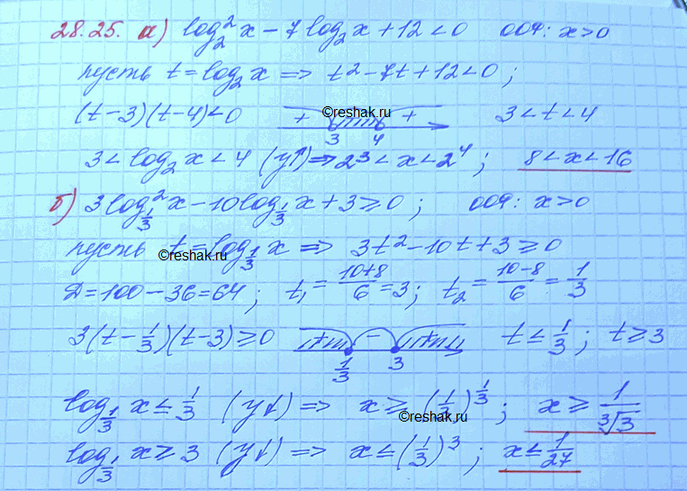 28.25. а) log₂²x − 7log₂x + 12 < 0   ОДЗ: x>0
пусть t = log₂x ⇒ t² − 7t + 12 < 0 ;
(t−3)(t−4)<0   + 3 4 +   3<t<4
©reshak.ru
3 < log₂x < 4 (y↑) ⇒ 2³ < x < 2⁴ ;   8 < x < 16
б) 3log²_{1/3}x − 10log_{1/3}x + 3 ≥ 0 ;   ОДЗ: x>0
пусть t = log_{1/3}x ⇒ 3t² − 10t + 3 ≥ 0
©reshak.ru
Д = 100 − 36 = 64 ;   t₁ = (10+8)/6 = 3 ;   t₂ = (10−8)/6 = 1/3
3(t − 1/3)(t−3) ≥ 0   + 1/3 − 3 +   t ≤ 1/3 ;   t ≥ 3
log_{1/3}x ≤ 1/3 (y↓) ⇒ x ≥ (1/3)^{1/3} ;   x ≥ 1/∛3
©reshak.ru
log_{1/3}x ≥ 3 (y↓) ⇒ x ≤ (1/3)³ ;   x ≤ 1/27